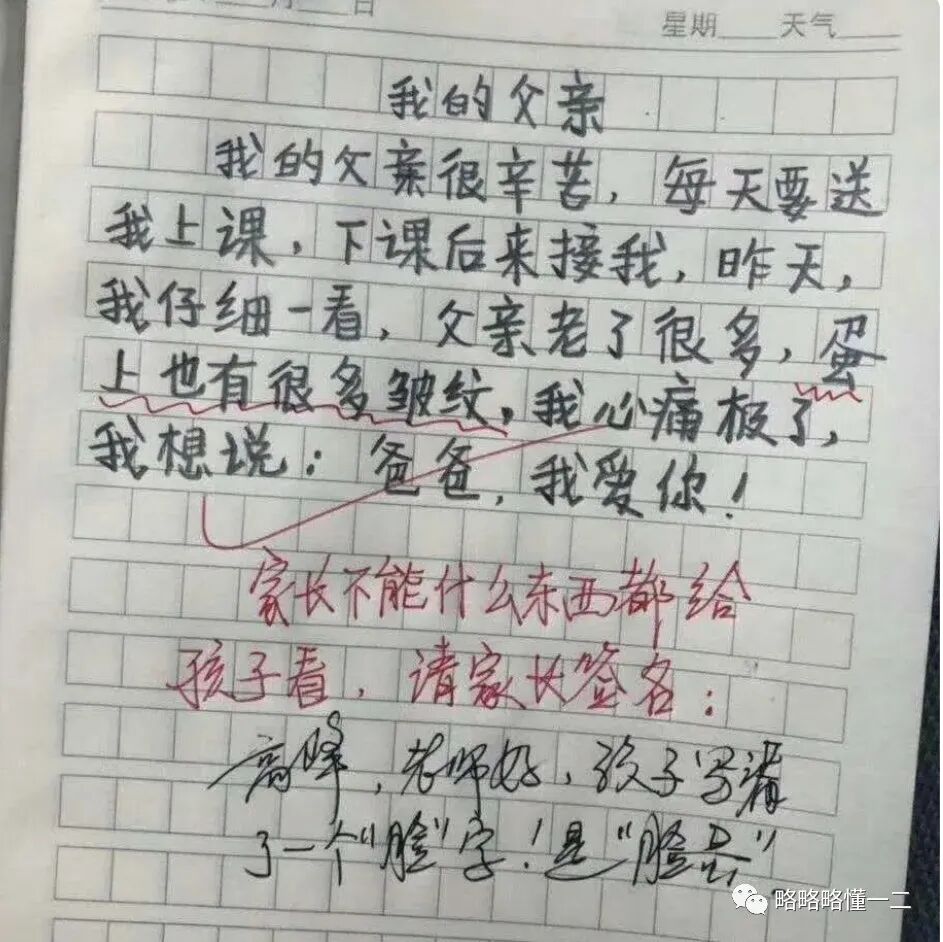 月 日
星期 天气
我的父亲
我的父亲很辛苦，每天要送
我上课，下课后来接我，昨天，
我仔细一看，父亲老了很多，蛋
上也有很多皱纹，我心痛极了，
我想说：爸爸，我爱你！
家长不能什么东西都给
孩子看，请家长签名：
高峰，老师好，孩子写漏
了一个“脸”字！是“脸蛋”
略略略懂一二